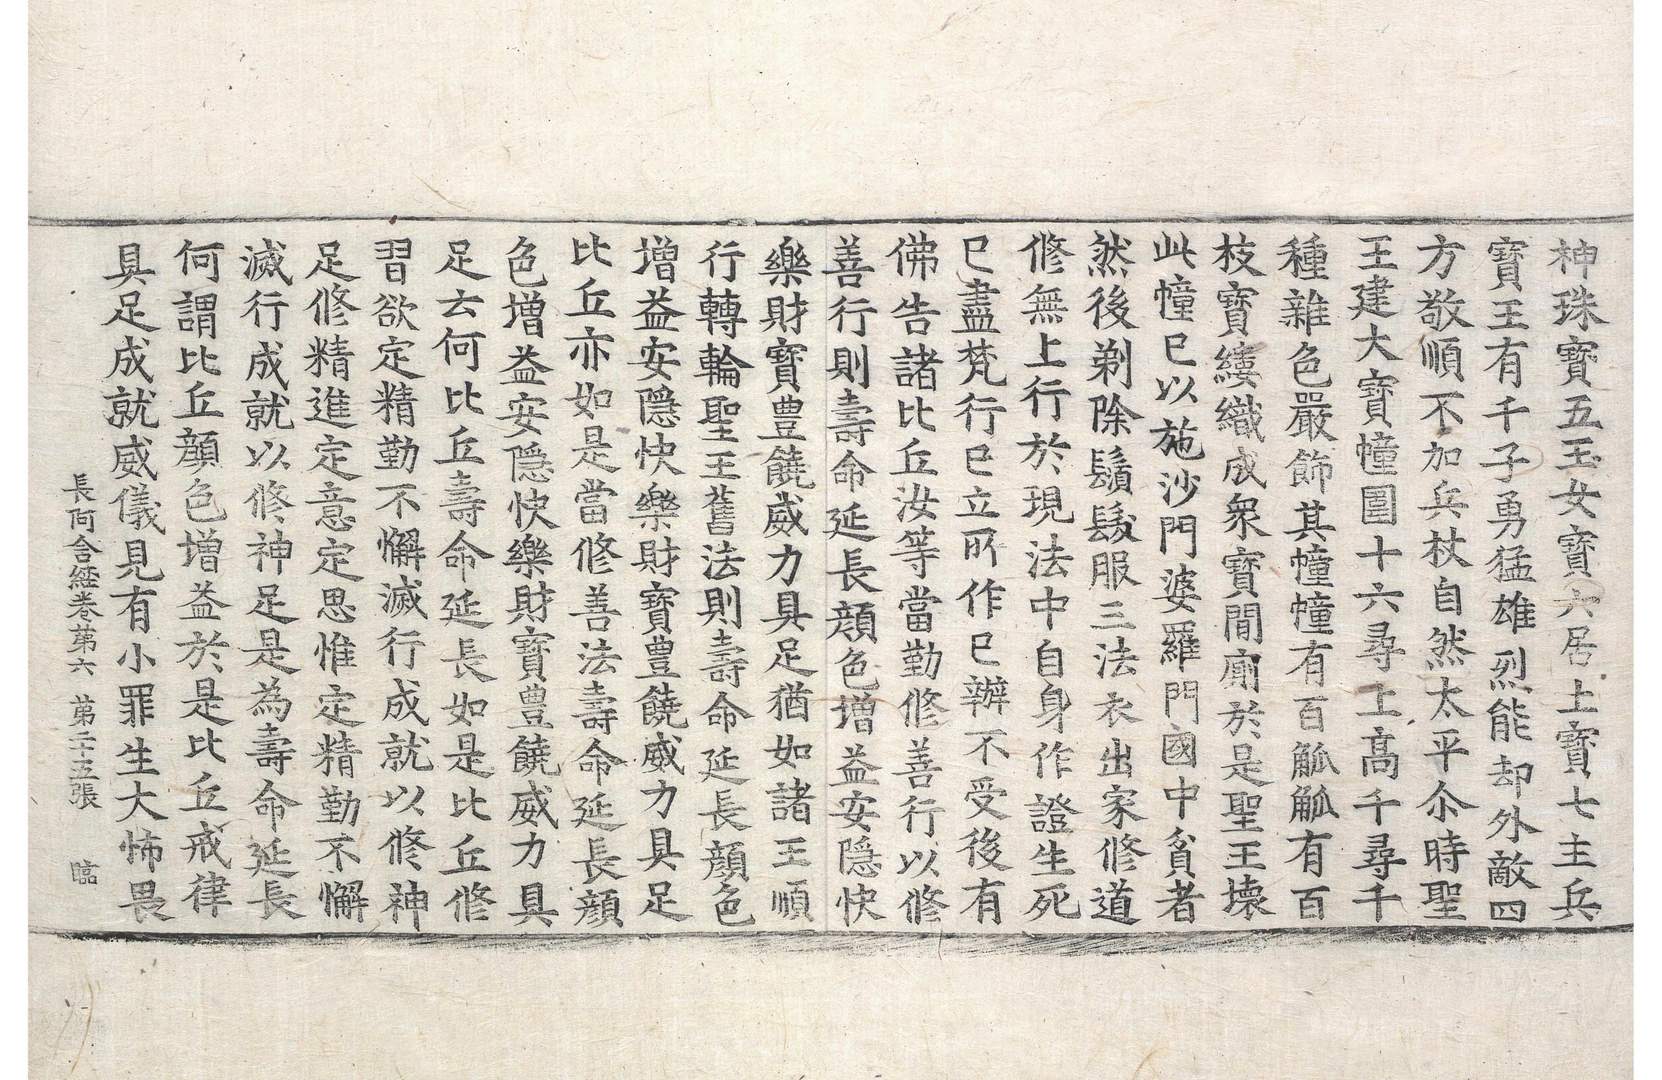 神珠寶五玉女寶六居士寶七主兵
寶王有千子勇猛雄烈能却外敵四
方敬順不加兵杖自然太平尒時聖
王建大寶幢圍十六尋上髙千尋千
種雜色嚴飾其幢幢有百觚觚有百
枝寶縷織成衆寶間廁於是聖王壞
此幢已以施沙門婆羅門國中貧者
然後剃除鬚髮服三法衣出家修道
修無上行於現法中自身作證生死
已盡梵行已立所作已辦不受後有
佛告諸比丘汝等當勤修善行以修
善行則壽命延長顔色增益安隱快
樂財寶豊饒威力具足猶如諸王順
行轉輪聖王舊法則壽命延長顔色
增益安隱快樂財寶豊饒威力具足
比丘亦如是當修善法壽命延長顔
色增益安隱快樂財寶豊饒威力具
足云何比丘壽命延長如是比丘修
習欲定精勤不懈滅行成就以修神
足修精進定意定思惟定精勤不懈
滅行成就以修神足是為壽命延長
何謂比丘顔色增益於是比丘戒律
具足成就威儀見有小罪生大怖畏
長阿含經卷第六 第二十五張 臨